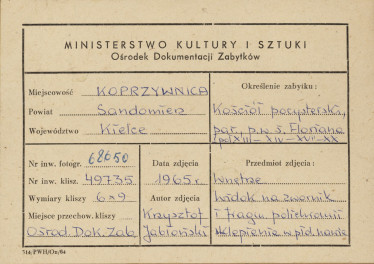 MINISTERSTWO KULTURY I SZTUKI
Ośrodek Dokumentacji Zabytków
Miejscowość KOPRZYWNICA
Powiat Sandomierz
Województwo Kielce
Określenie zabytku:
Kościół pocysterski,
par. p.w. ś. Floriana
XIII - XIV - XVI - XX
Nr inw. fotogr. 68650
Nr inw. klisz. 49735
Wymiary kliszy 6x9
Miejsce przechow. kliszy
Ośrod. Dok. Zab.
Data zdjęcia
1965 r.
Autor zdjęcia
Krzysztof
Jabłoński
Przedmiot zdjęcia:
Wnętrze
widok na zwornik
i fragm. polichromii
sklepienie w płd. nawie